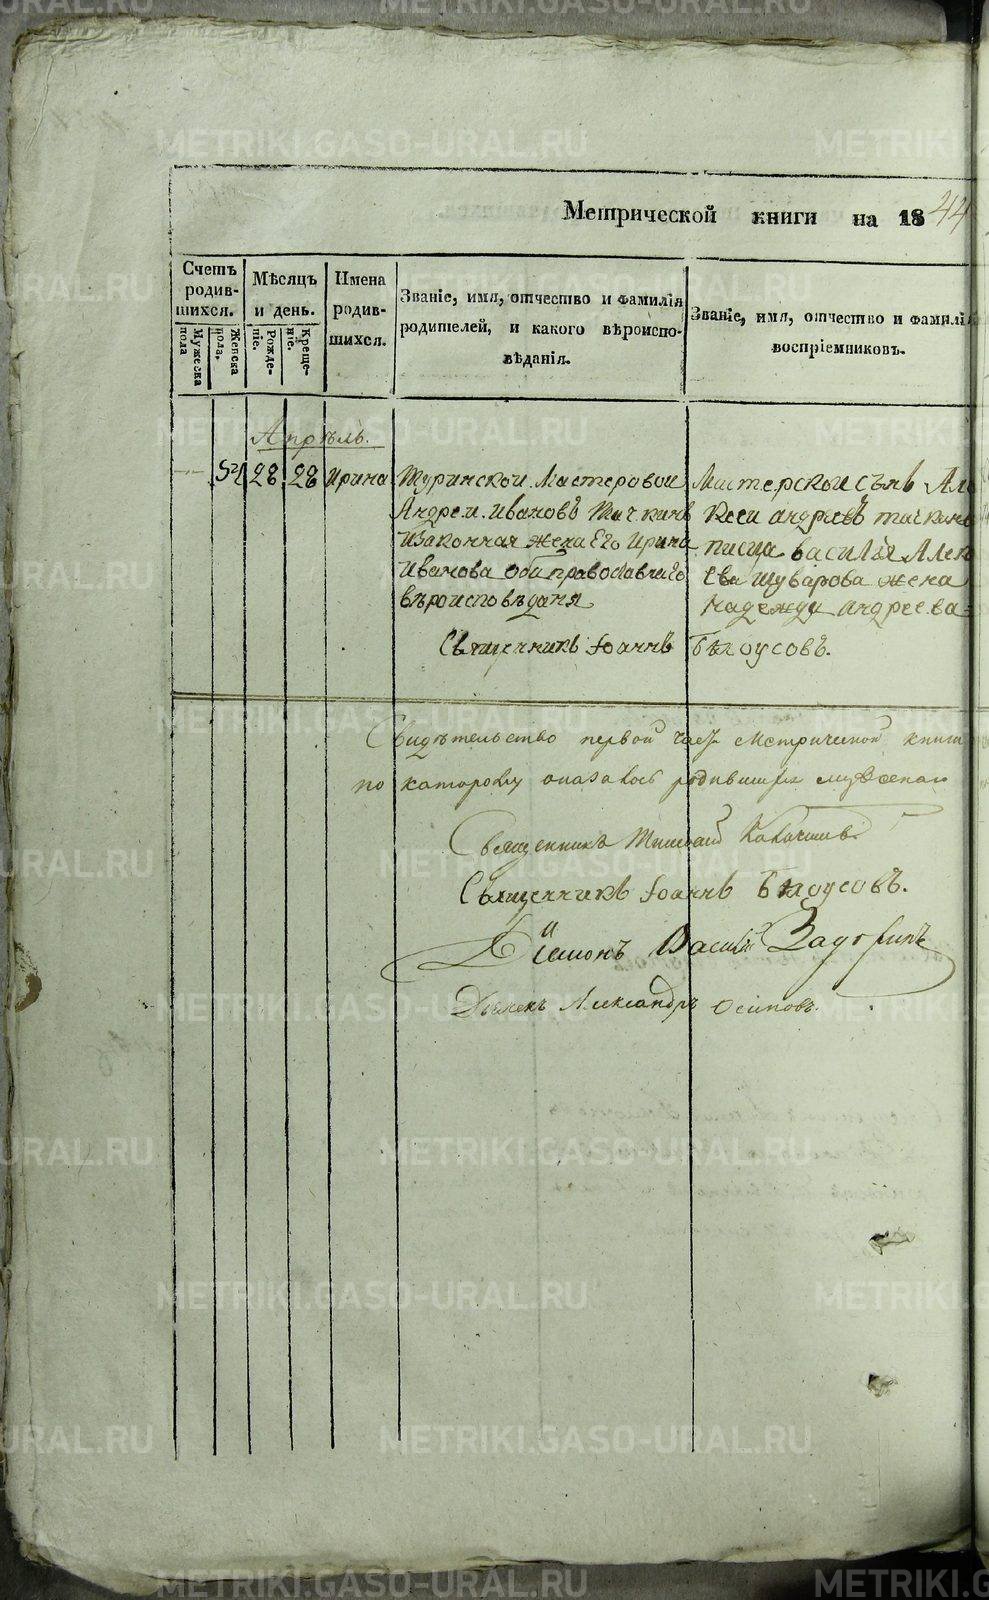 METRIKI.GASO-URAL.RU
Метрической книги на 1844
Счетъ родив-шихся.
Мужеска пола
Женска пола.
Мѣсяцъ и день.
Рожде-ніе.
Креще-ніе.
Имена родив-шихся.
Званіе, имя, отчество и фамилія
родителей, и какого вѣроиспо-
вѣданія.
Званіе, имя, отчество и фамилія
воспріемниковъ.
Апрѣль.
28 28 Ирина
Туринской Мастеровой
Андрей Ивановъ Тичкинъ
и законная жена Его Ирина
Иванова оба православнаго
вѣроисповѣданя
Мастерской сынъ Але
ксеи андреевъ тичкинъ
писца василья Алек
ева шуварова жена
надежда андреева
Священникъ Іоаннъ Бѣлоусовъ.
Свидѣтельство первой части Метрической книги
по которому оказалось родившихся мужеска
Священникъ
Священникъ Іоаннъ Бѣлоусовъ.
Діаконъ Василій
Дьячекъ Александръ Осиповъ.